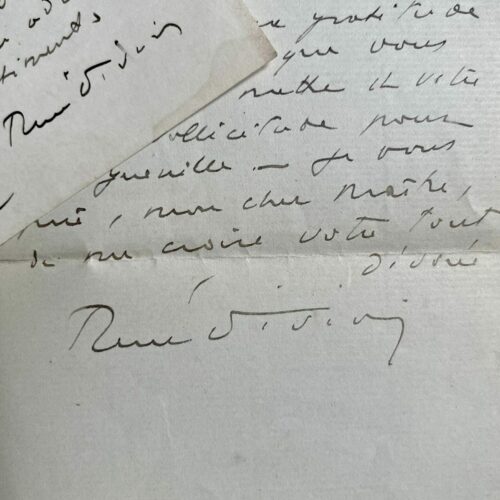 timents
René Vivien
gratitude
que vous
votre
ollicitude pour
guenille — je vous
prie, mon cher Maître,
de me croire votre tout
dévoué
René Vivien